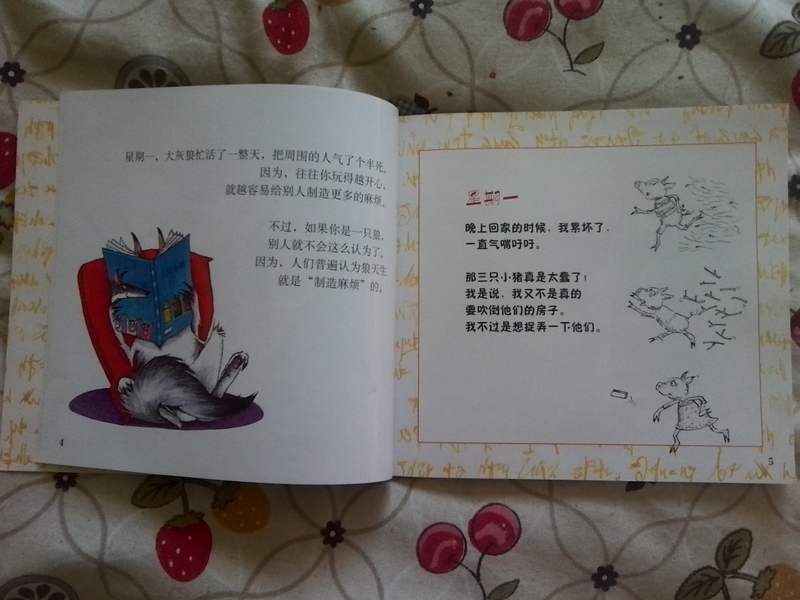 星期一，大灰狼忙活了一整天，把周围的人气了个半死，
因为，往往你玩得越开心，
就越容易给别人制造更多的麻烦。
不过，如果你是一只狼，
别人就不会这么认为了，
因为，人们普遍认为狼天生
就是“制造麻烦”的。
4
星期一
晚上回家的时候，我累坏了，
一直气喘吁吁。
那三只小猪真是太蠢了！
我是说，我又不是真的
要吹倒他们的房子。
我不过是想捉弄一下他们。
5